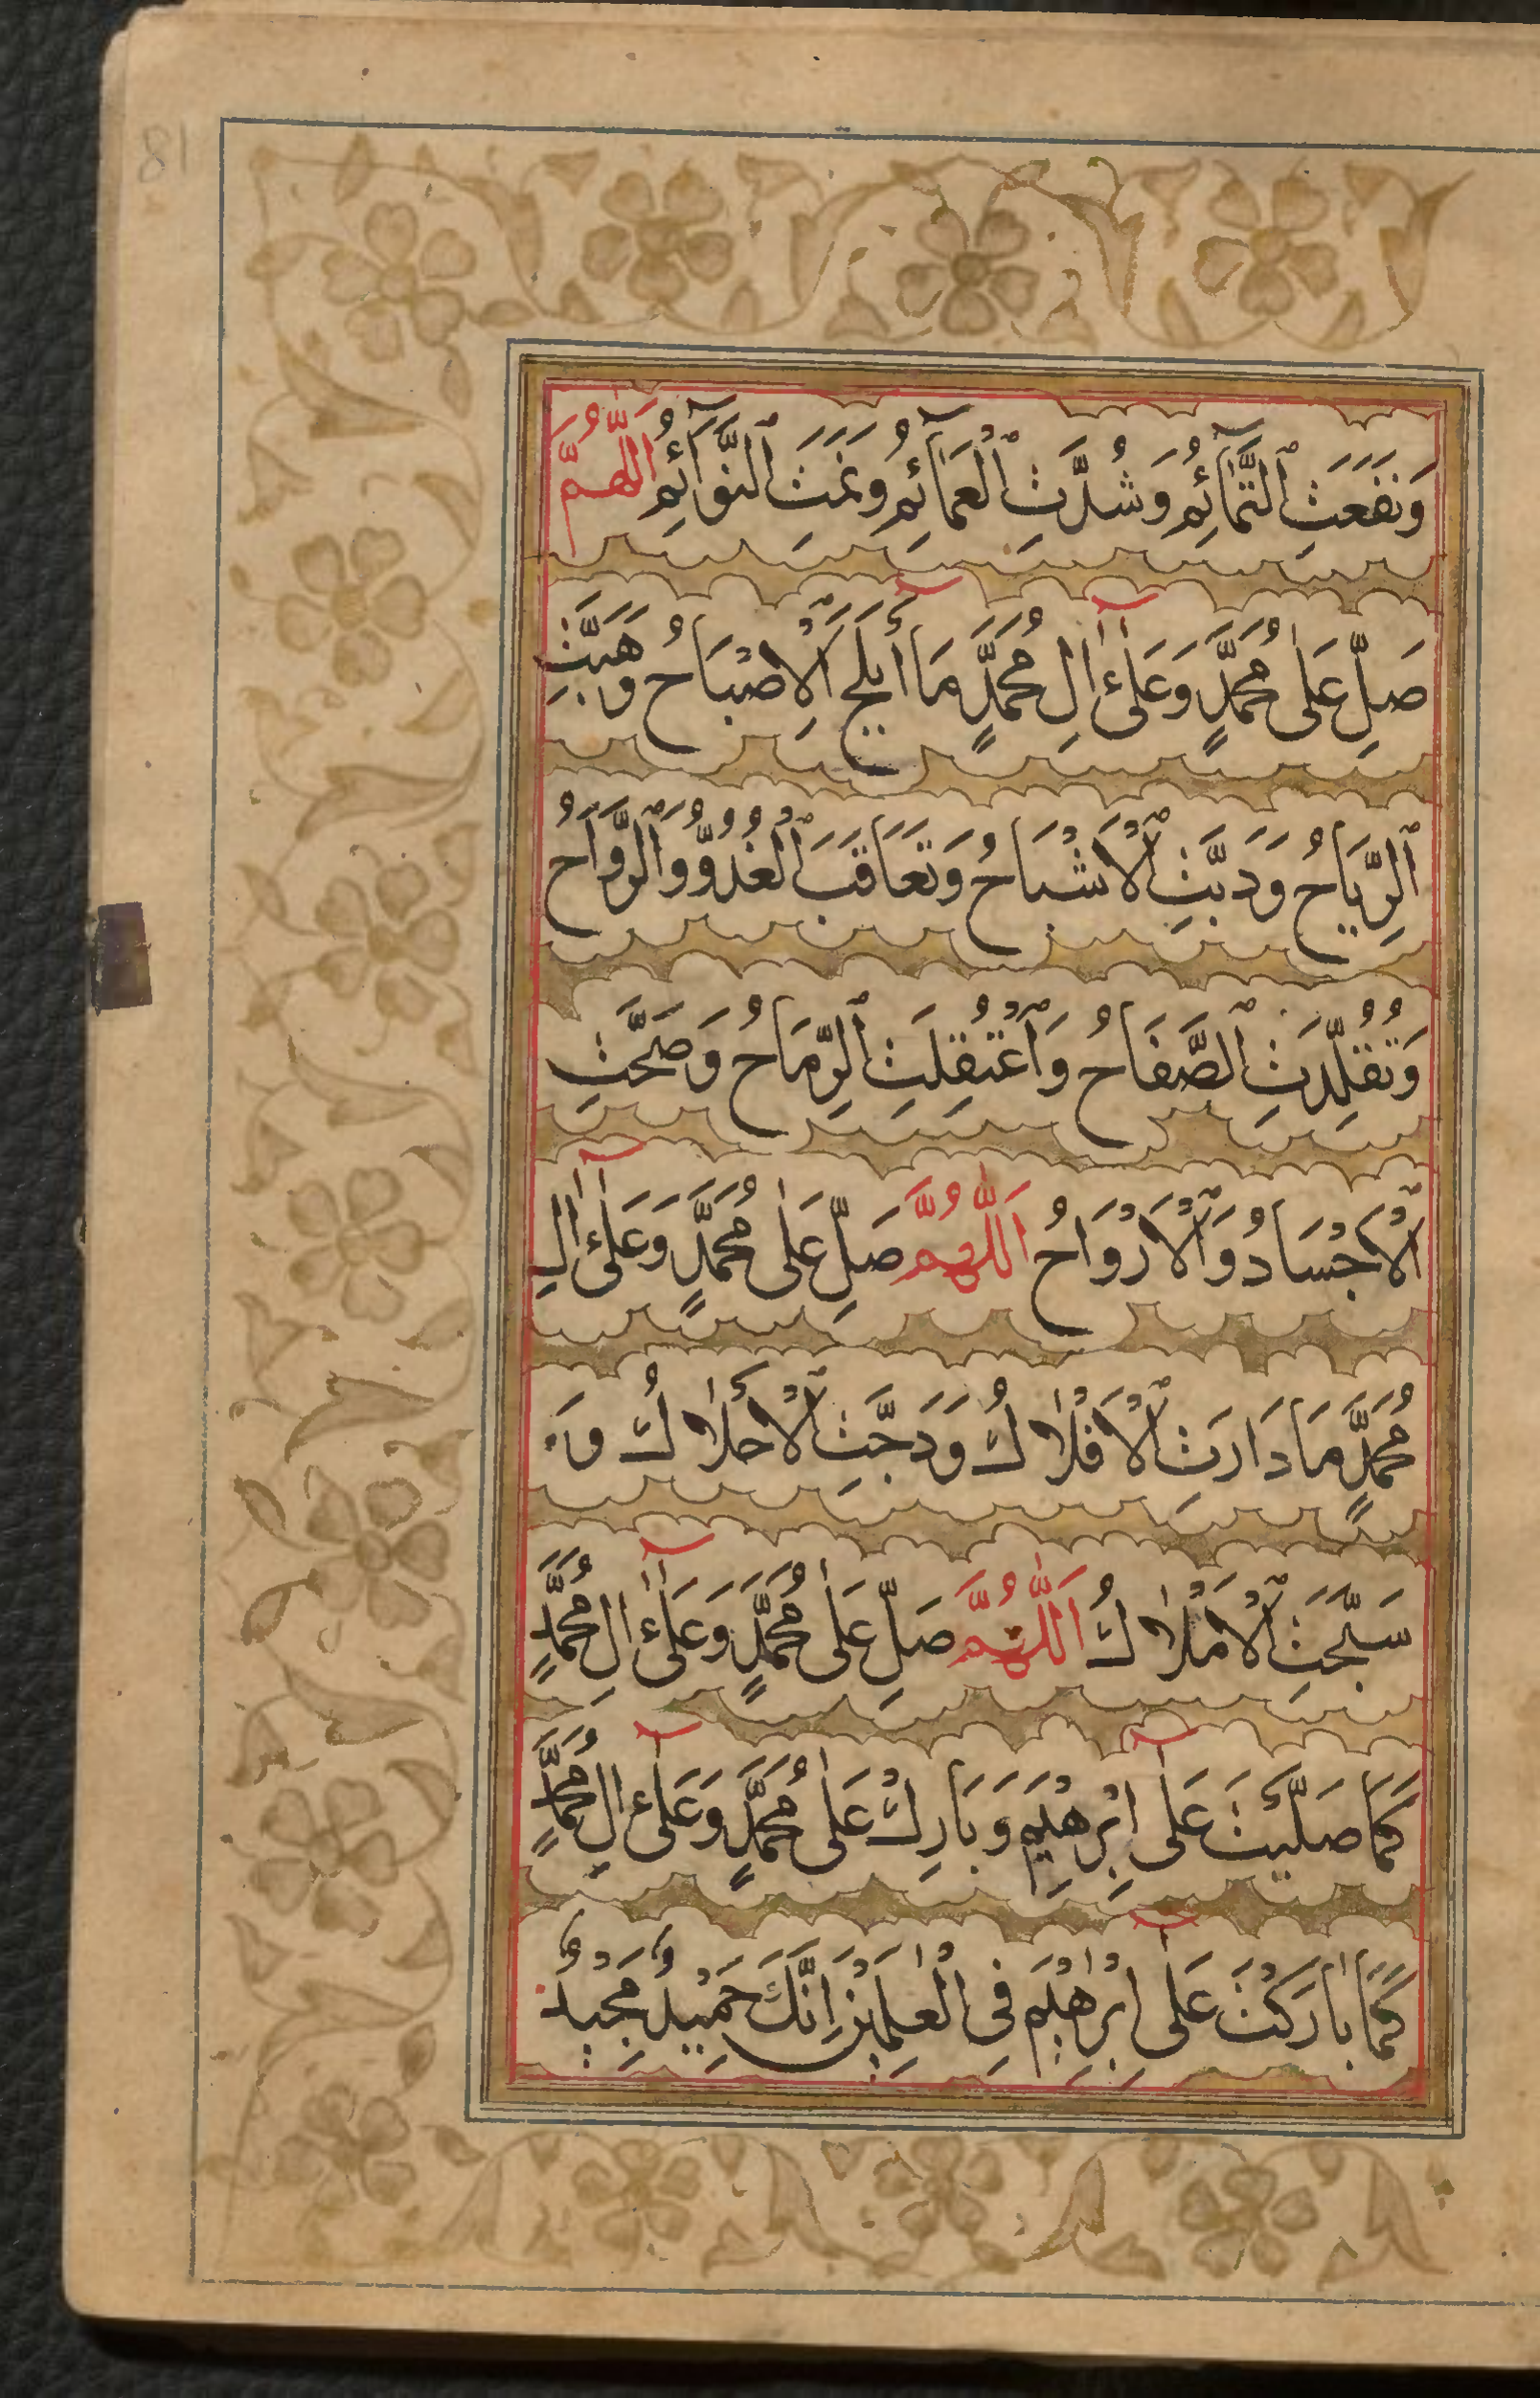 18
وَنَفَعَتِ ٱلتَّمَآئِمُ وَشُدَّتِ ٱلْعَمَآئِمُ وَنَمَتِ ٱلنَّوَآئِمُ اَللّٰهُمَّ
صَلِّ عَلٰى مُحَمَّدٍ وَعَلٰٓى اٰلِ مُحَمَّدٍ مَا أَبْلَجَ ٱلْاِصْبَاحُ وَهَبَّتِ
ٱلرِّيَاحُ وَدَبَّتِ ٱلْاَشْبَاحُ وَتَعَاقَبَ ٱلْغُدُوُّ وَٱلرَّوَاحُ
وَتُقُلِّدَتِ ٱلصَّفَاحُ وَٱعْتُقِلَتِ ٱلرِّمَاحُ وَصَحَّتِ
ٱلْاَجْسَادُ وَٱلْاَرْوَاحُ اَللّٰهُمَّ صَلِّ عَلٰى مُحَمَّدٍ وَعَلٰٓى اٰلِ
مُحَمَّدٍ مَا دَارَتِ ٱلْاَفْلَاكُ وَدَجَّتِ ٱلْأَحْلَاكُ وَ
سَبَّحَتِ ٱلْاَمْلَاكُ اَللّٰهُمَّ صَلِّ عَلٰى مُحَمَّدٍ وَعَلٰٓى اٰلِ مُحَمَّدٍ
كَمَا صَلَّيْتَ عَلٰٓى اِبْرٰهِيمَ وَبَارِكْ عَلٰى مُحَمَّدٍ وَعَلٰٓى اٰلِ مُحَمَّدٍ
كَمَا بَارَكْتَ عَلٰٓى اِبْرٰهِيْمَ فِى الْعٰلَمِيْنَ اِنَّكَ حَمِيْدٌ مَجِيْدٌ